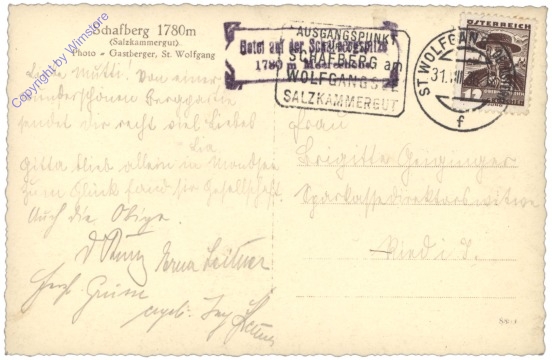 Schafberg 1780m
(Salzkammergut)
Photo - Gastberger, St. Wolfgang
Copyright by Winstore
Hotel auf der Schafbergspitze
1780 m
AUSGANGSPUNKT
SCHAFBERG am
WOLFGANGSEE
SALZKAMMERGUT
ST. WOLFGANG
31.
f
ÖSTERREICH
12
Liebe Mutti! Von einer
wunderschönen Bergpartie
sendet dir recht viel Liebes
Lia
Gitta blieb allein in Mondsee
zum Glück fand sie Gesellschaft.
Auch die Obige.
Erna Leitner
Frau
Brigitte Geiginger
Sparkassedirektorswitwe
Ried i. I.